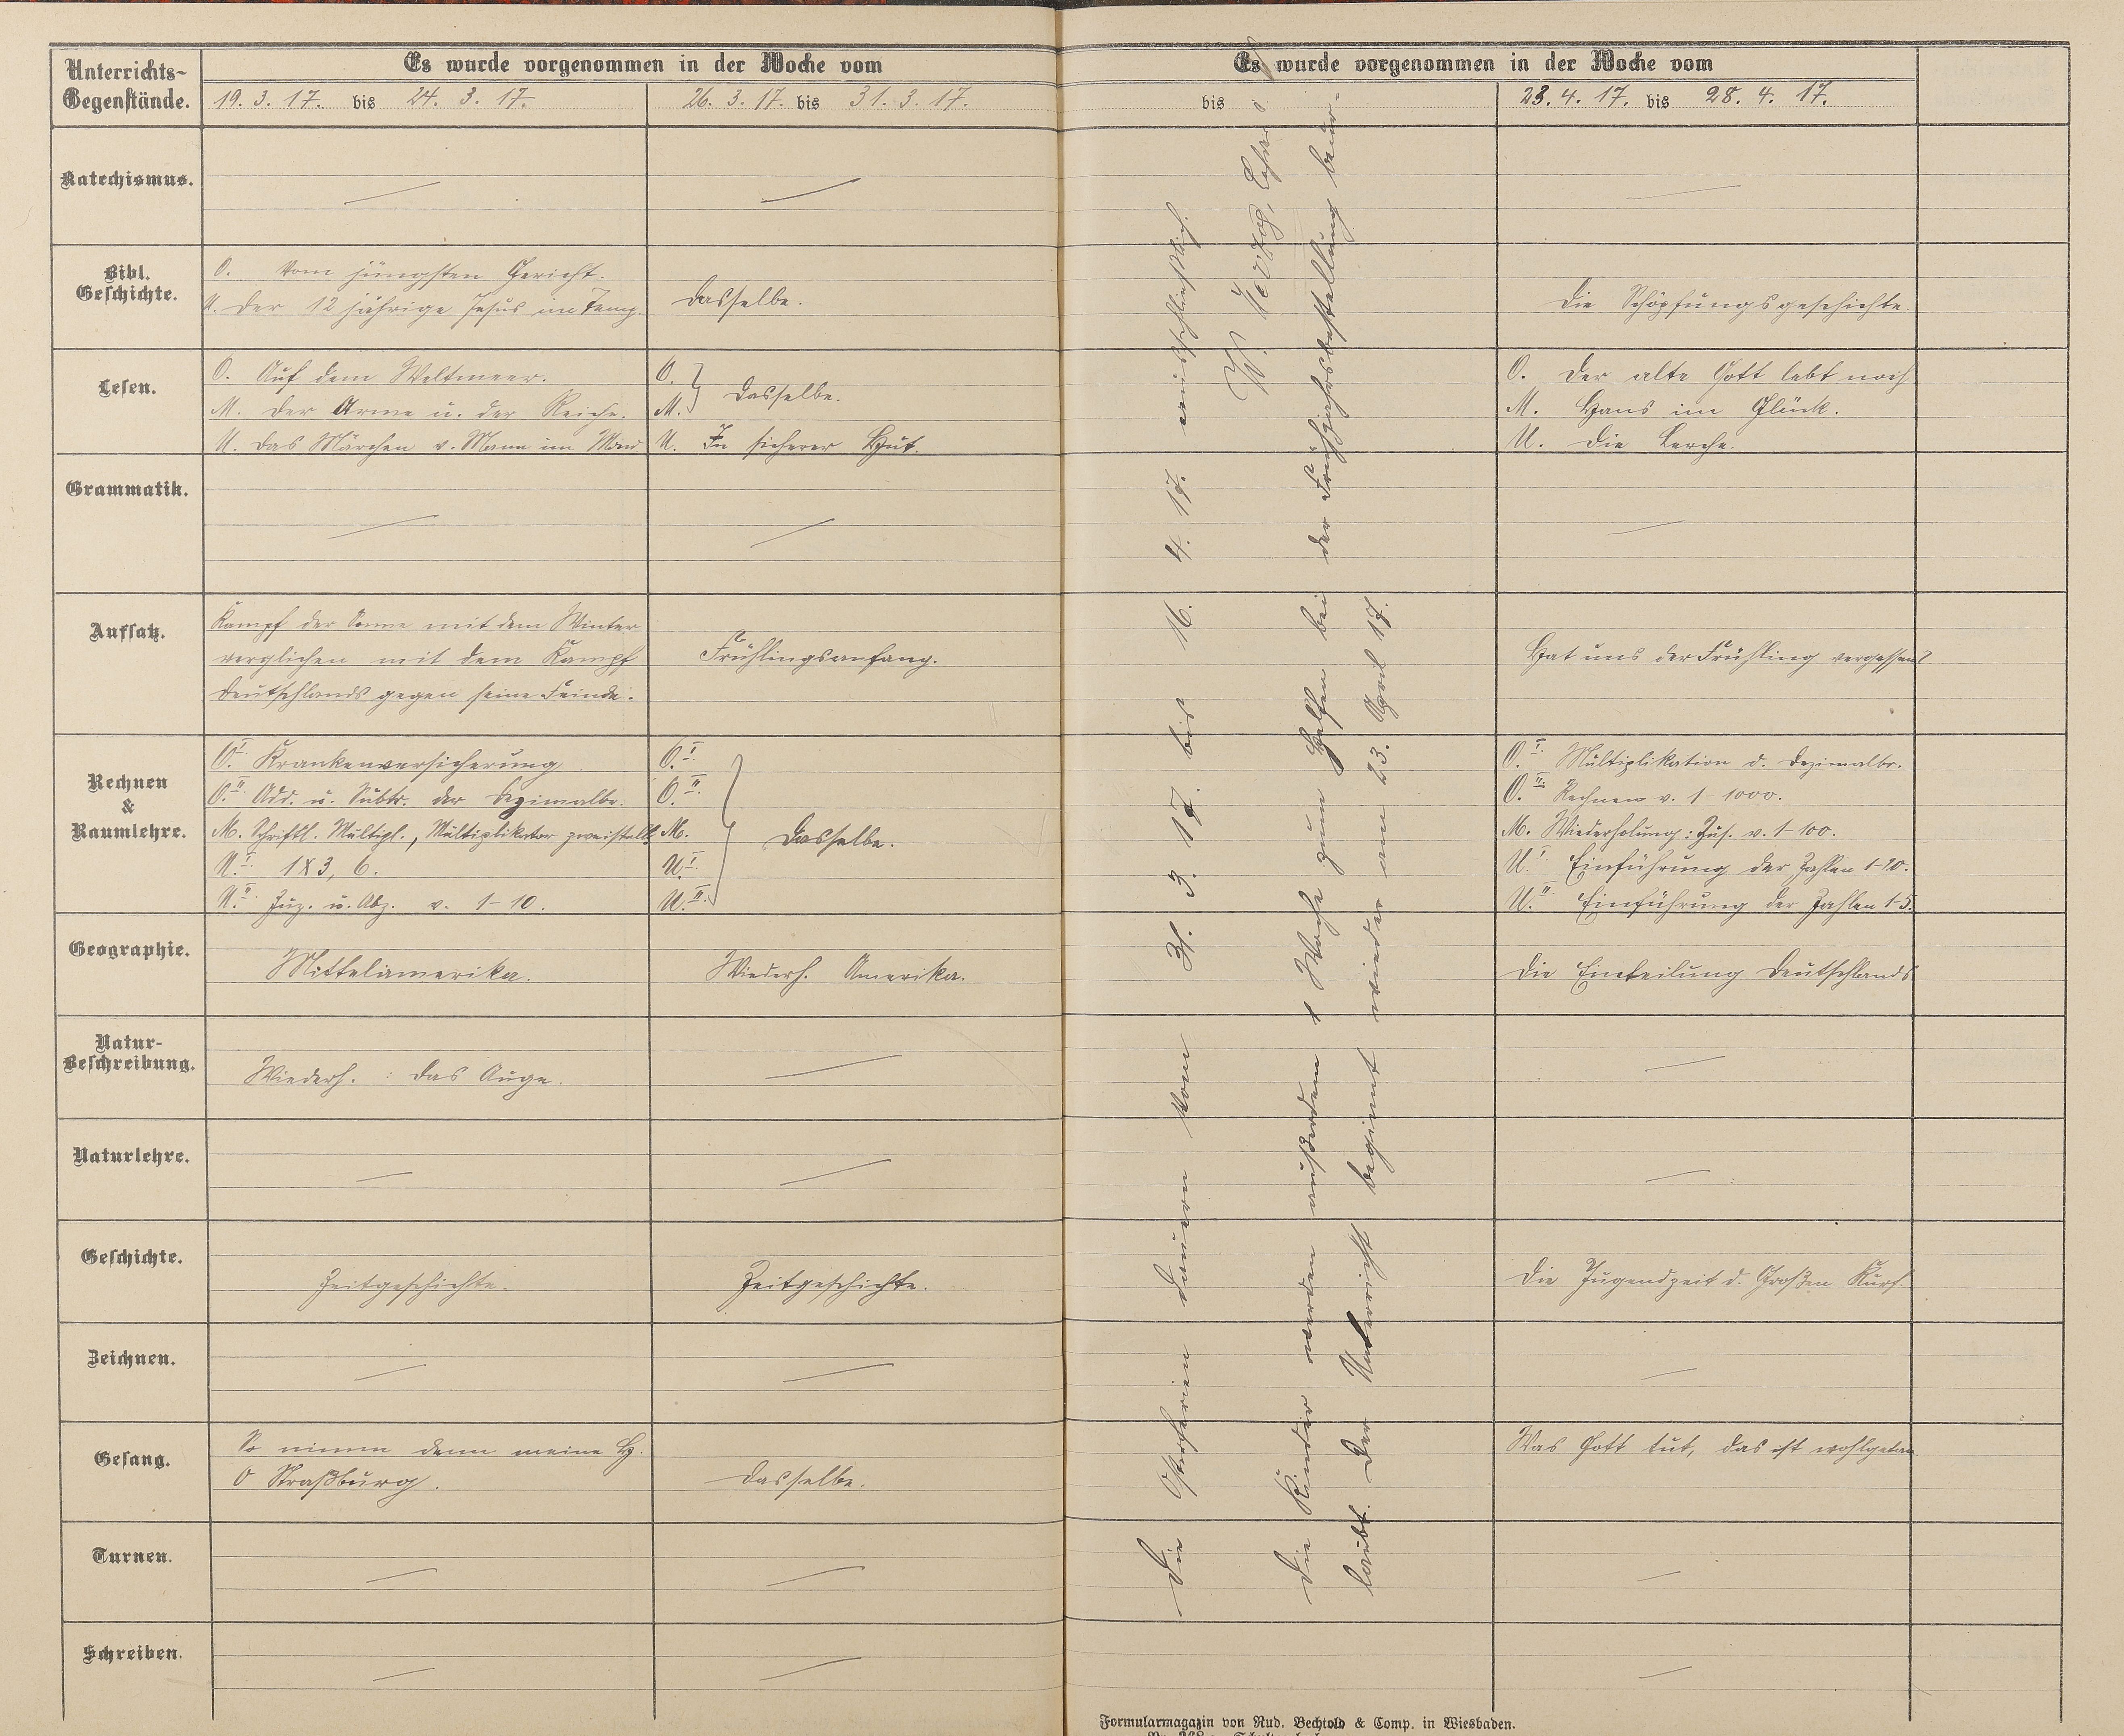 Unterrichts-
Gegenstände.
Es wurde vorgenommen in der Woche vom
19. 3. 17. bis 24. 3. 17.
26. 3. 17. bis 31. 3. 17.
Es wurde vorgenommen in der Woche vom
bis
23. 4. 17. bis 28. 4. 17.
Katechismus.
—
—
—
Bibl.
Geschichte.
O. Vom jüngsten Gericht.
U. Der 12 jährige Jesus im Temp.
Dasselbe.
Die Schöpfungsgeschichte.
Lesen.
O. Auf dem Weltmeer.
M. Der Arme u. der Reiche.
U. Das Märchen v. Mann im Mond
O.
M. Dasselbe.
U. In sicherer Hut.
O. Der alte Gott lebt noch
M. Hans im Glück.
U. Die Lerche.
Grammatik.
—
—
—
Aufsatz.
Kampf der Sonne mit dem Winter
verglichen mit dem Kampf
Deutschlands gegen seine Feinde.
Frühlingsanfang.
Hat uns der Frühling vergessen?
Rechnen
&
Raumlehre.
O.I. Krankenversicherung
O.II. Add. u. Subtr. der Dezimalbr.
M. Schriftl. Multipl., Multiplikator zweistell.
U.I. 1x3, 6.
U.II. Zuz. u. Abz. v. 1-10.
O.I.
O.II.
M. Dasselbe.
U.I.
U.II.
O.I. Multiplikation d. Dezimalbr.
O.II. Rechnen v. 1-1000.
M. Wiederholung: Zus. v. 1-100.
U.I. Einführung der Zahlen 1-20.
U.II. Einführung der Zahlen 1-5.
Geographie.
Mittelamerika.
Wiederh. Amerika.
Die Einteilung Deutschlands
Natur-
Beschreibung.
Wiederh.: Das Auge.
—
—
Naturlehre.
—
—
—
Geschichte.
Zeitgeschichte.
Zeitgeschichte.
Die Jugendzeit d. Großen Kurf.
Zeichnen.
—
—
—
Gesang.
So nimm denn meine H.
O Straßburg.
Dasselbe.
Was Gott tut, das ist wohlgetan
Turnen.
—
—
—
Schreiben.
—
—
—
Die Osterferien dauern vom 31. 3. 17. bis 16. 4. 17. einschließlich.
W. Herzog, Lehrer
Die Kinder werden außerdem 1 Woche zum Helfen bei der Frühjahrsbestellung beur-
laubt. Der Unterricht beginnt wieder am 23. April 17.
Formularmagazin von Rud. Bechtold & Comp. in Wiesbaden.